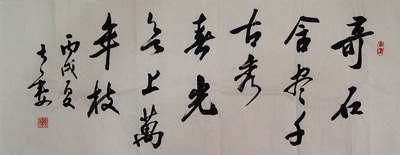 奇石
含尽千
古秀
春光
上萬
年枝
丙戌夏